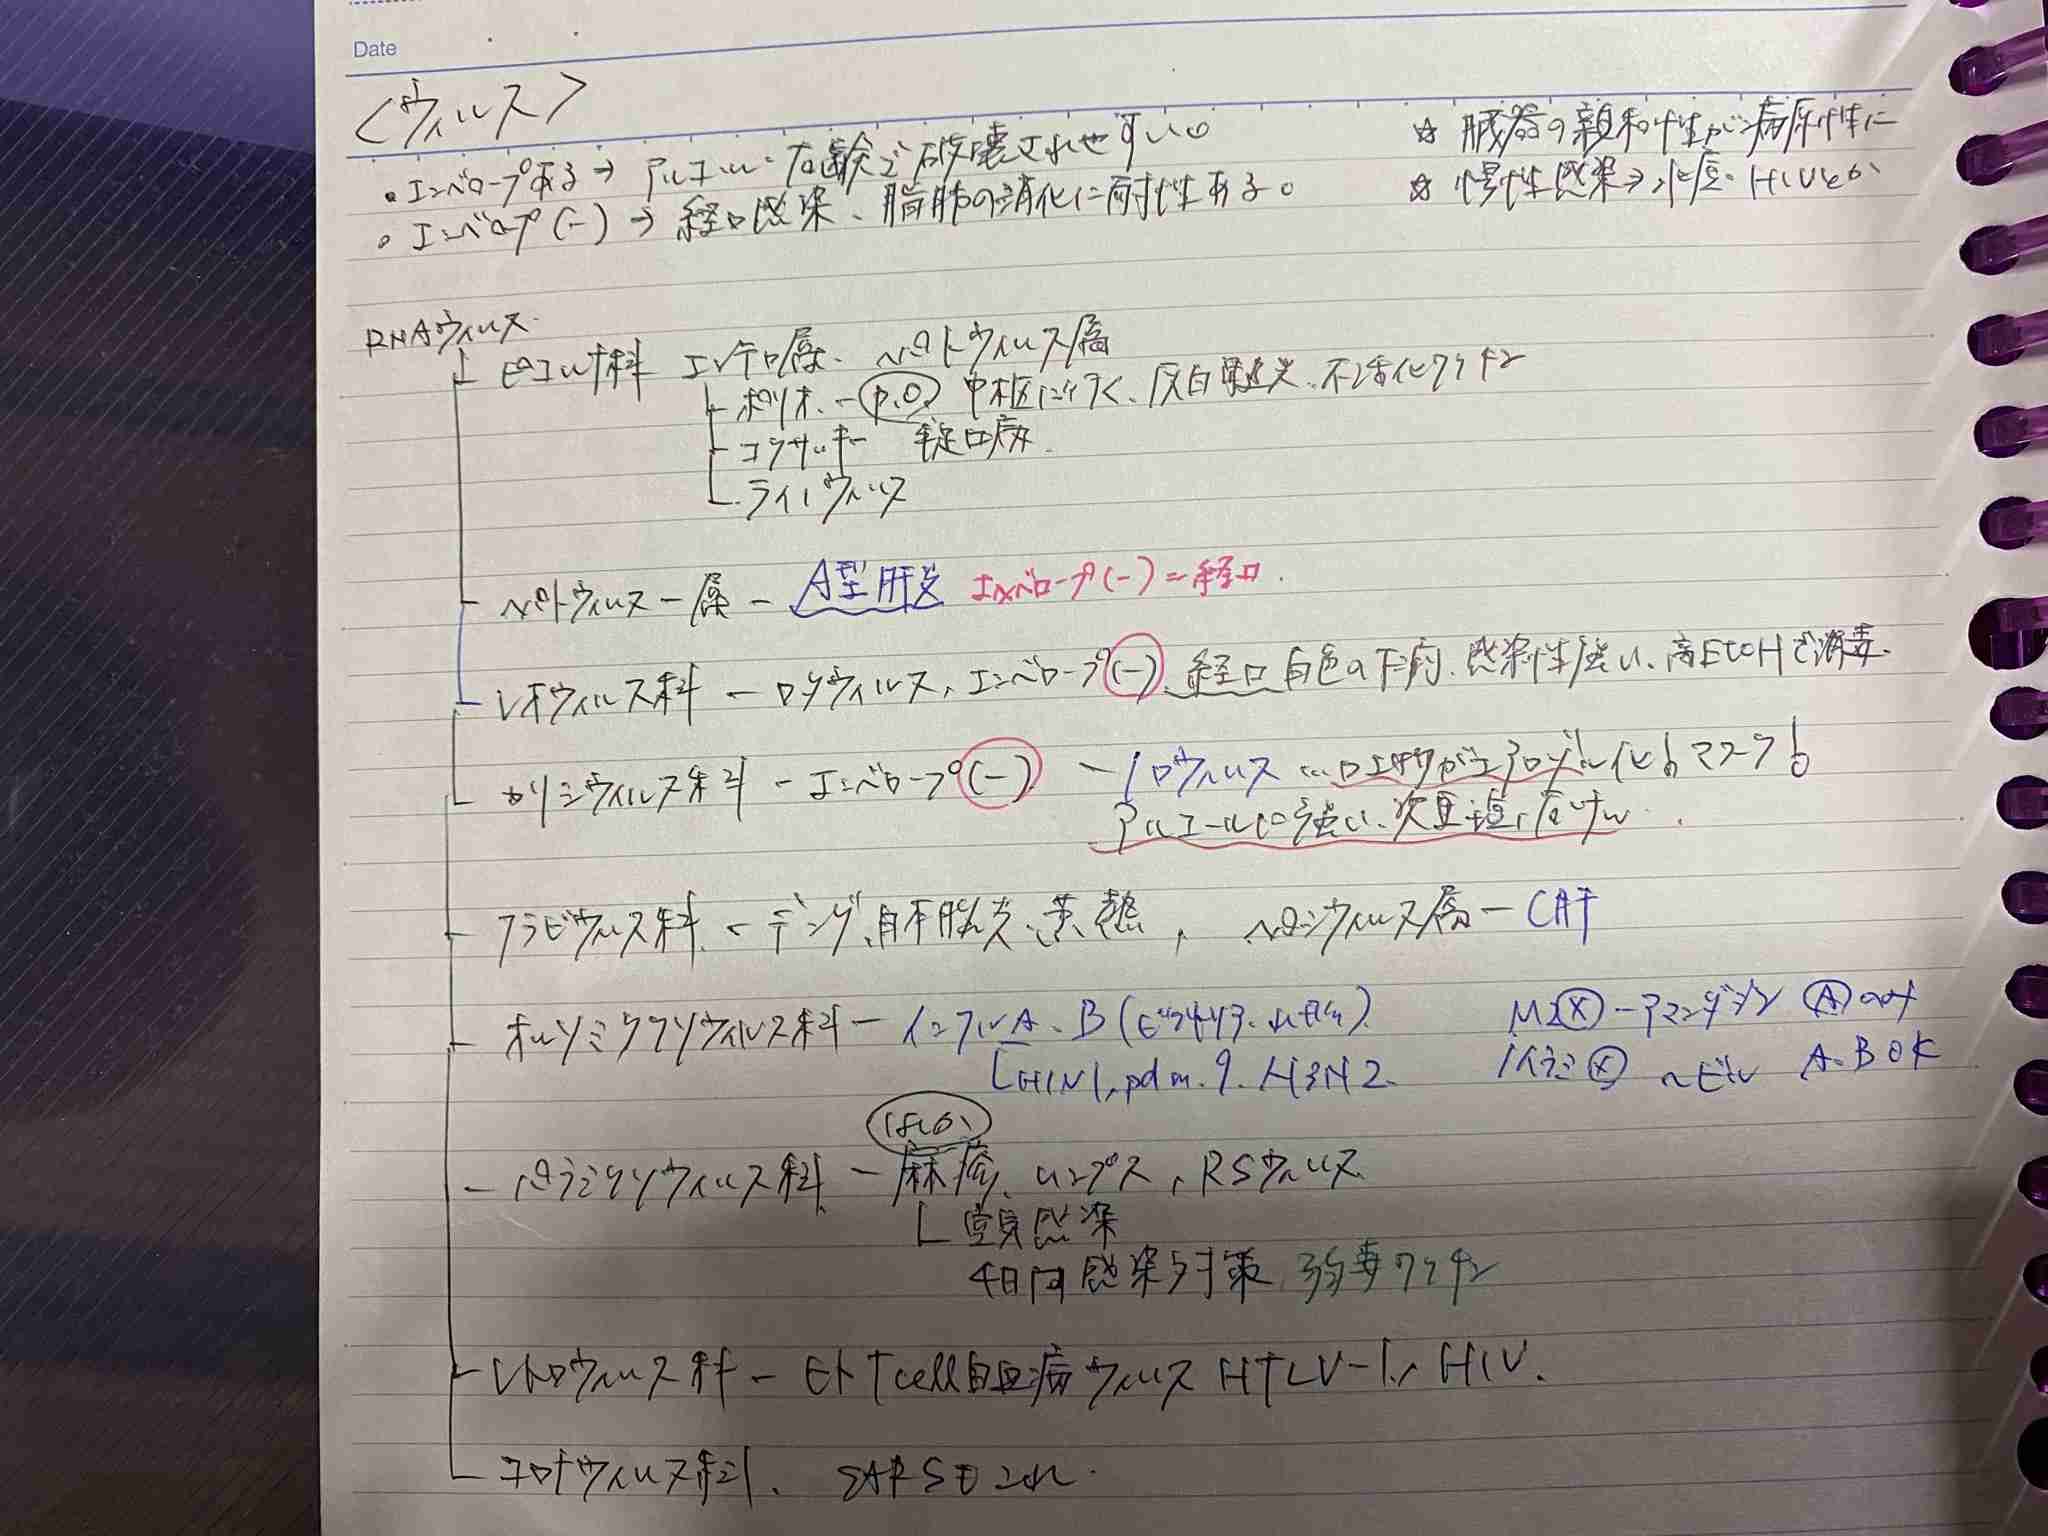 Date
<ウィルス>
・エンベロープある→アルコール・石鹸で破壊されやすい。
☆ 臓器の親和性が病原性に
・エンベロープ(-)→経口感染、脂肪の消化に耐性ある。
☆ 慢性感染→水痘・HIVとか
RNAウィルス
ピコルナ科 エンテロ属、ヘパトウィルス属
ポリオ - p.o. 中枢に行く、灰白髄炎、不活化ワクチン
コクサッキー 手足口病
ライノウィルス
ヘパトウィルス-属-A型肝炎 エンベロープ(-)=経口
レオウィルス科-ロタウィルス、エンベロープ(-)、経口 白色の下痢、感染性強い、高EtOHで消毒
カリシウィルス科-エンベロープ(-) -ノロウィルス …ロエサクがエアロゾル化! マスク!
アルコールに強い、次亜塩、石けん
フラビウィルス科-デング、日本脳炎、黄熱, ヘパシウィルス属-C肝
オルソミクソウィルス科-インフルA、B(ビクトリア、山形)
M2(×)-アマンタジン (A)のみ
H1N1,pdm.9. H3N2
ノイラミ(×) ~ビル A.B OK
はしか
パラミクソウィルス科-麻疹、ムンプス,RSウィルス
空気感染
4日間感染対策 弱毒ワクチン
レトロウィルス科-ヒトTcell白血病ウィルス HTLV-1, HIV.
コロナウィルス科、SARSもこれ.